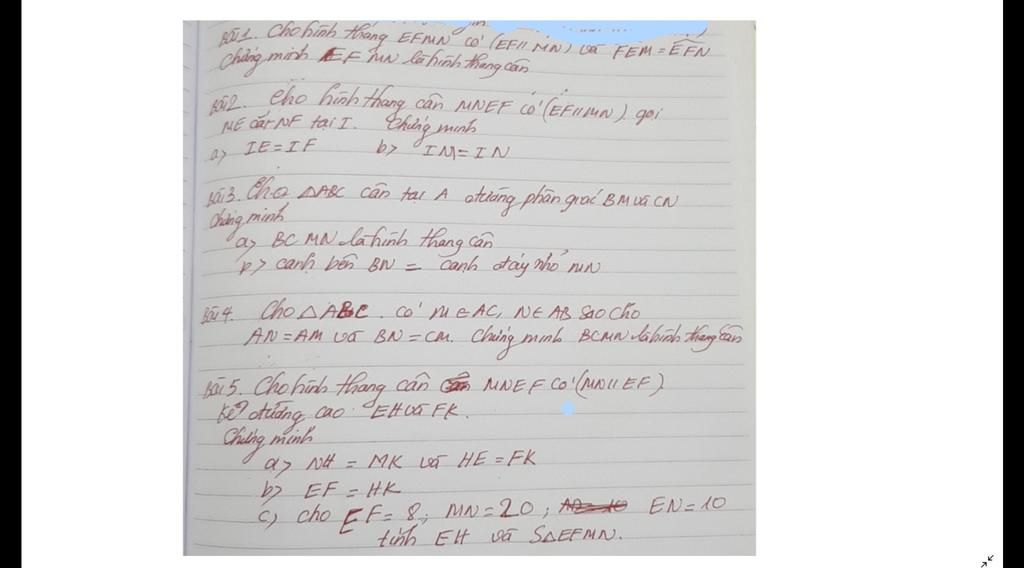 Bài 1. Cho hình thang EFMN có (EF // MN) và FEM = EFN
Chứng minh EF MN là hình thang cân
Bài 2. Cho hình thang cân MNEF có (EF // MN) gọi
ME cắt NF tại I. Chứng minh
a> IE = IF b> IM = IN
Bài 3. Cho △ABC cân tại A đường phân giác BM và CN
Chứng minh
a> BC MN là hình thang cân
b> cạnh bên BN = cạnh đáy nhỏ MN
Bài 4. Cho △ABC. có M ∈ AC, N ∈ AB sao cho
AN = AM và BN = CM. Chứng minh BCMN là hình thang cân
Bài 5. Cho hình thang cân MNEF có (MN // EF)
Kẻ đường cao EH và FK.
Chứng minh
a> NH = MK và HE = FK
b> EF = HK
c) cho EF = 8; MN = 20; EN = 10
tính EH và S△EFMN.